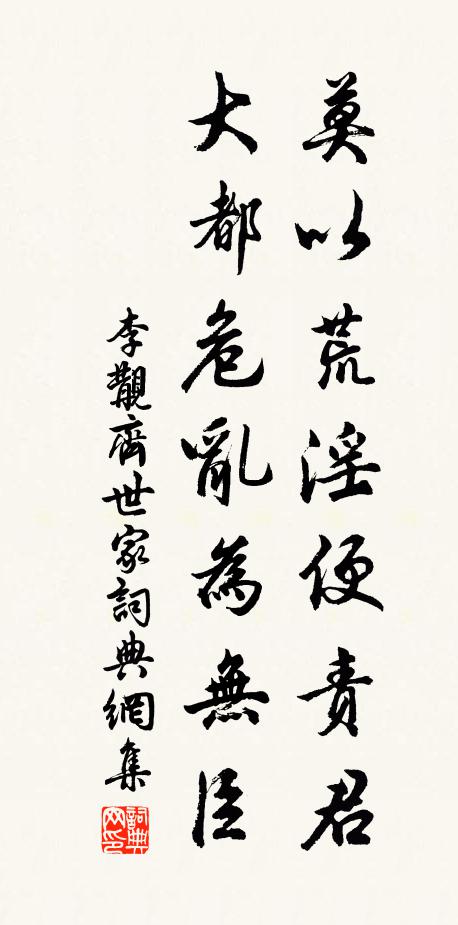 莫以荒淫便責君
大都危亂為無臣
李觀齊世家詞典網集
詞典
网印